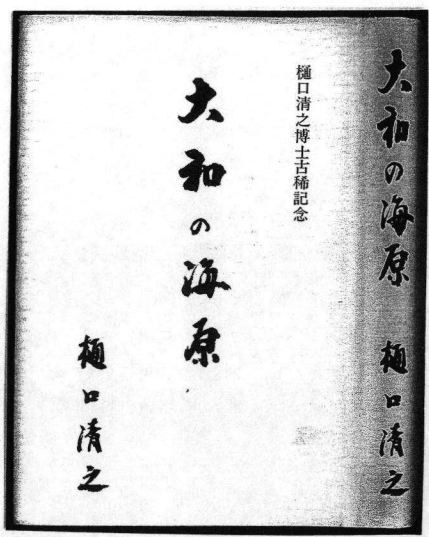 大和の海原 樋口清之
樋口清之博士古稀記念
大和の海原
樋口清之